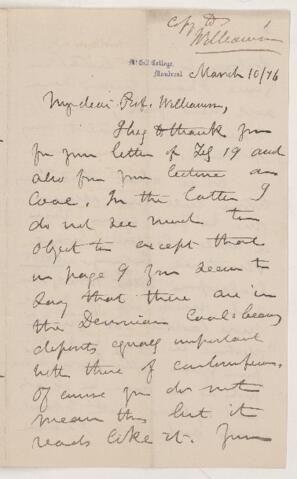 copy to
Williamson
McGill College,
Montreal
March 10/76
My dear Prof. Williamson,
I beg to thank you
for your letter of Feb 19 and
also for your lecture on
Coal. In the latter I
do not see much to
object to except that
in page 9 you seem to
say that there are in
the Devonian Coal-bearing
deposits equally important
with those of carboniferous.
Of course you do not
mean this but it
reads like it. Your